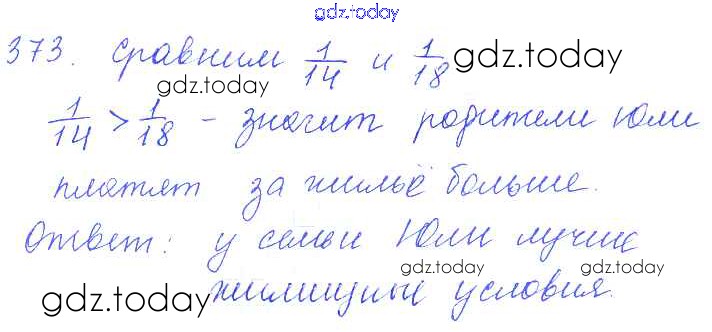 gdz.today
373. Сравним 1/14 и 1/18 gdz.today
gdz.today
1/14 > 1/18 - значит родители Юли
платят за жильё больше.
Ответ: у семьи Юли лучше
gdz.today gdz.today
gdz.today жилищные условия.